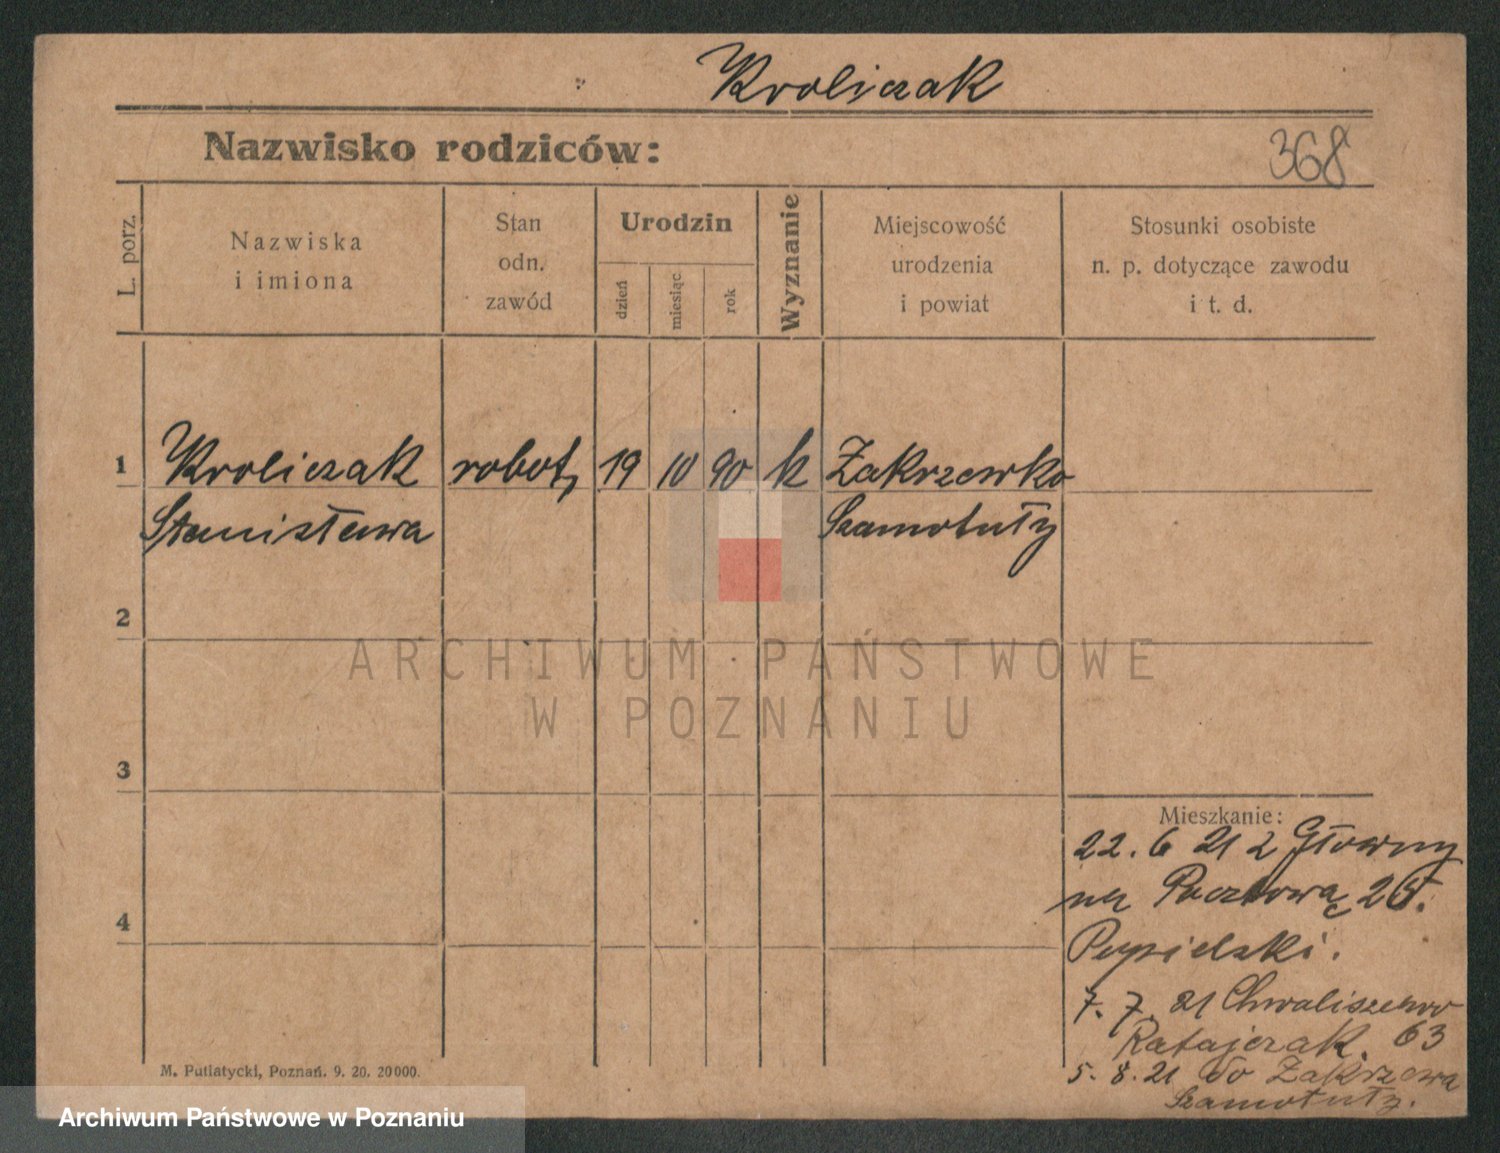 Kroliczak
Nazwisko rodziców:
368
L. porz.
Nazwiska
i imiona
Stan
odn.
zawód
Urodzin
dzień
miesiąc
rok
Wyznanie
Miejscowość
urodzenia
i powiat
Stosunki osobiste
n. p. dotyczące zawodu
i t. d.
1 Kroliczak robot, 19 10 90 k Zakrzewko
Stanisława Szamotuły
2
3
4
ARCHIWUM PAŃSTWOWE
W POZNANIU
Mieszkanie:
22. 6 21 z Główny
na Pocztową 25.
Popielski.
7. 7. 21 Chwaliszewo
Ratajczak. 63
5. 8. 21 do Zakrzewa
Szamotuły.
M. Putiatycki, Poznań. 9. 20. 20000.
Archiwum Państwowe w Poznaniu